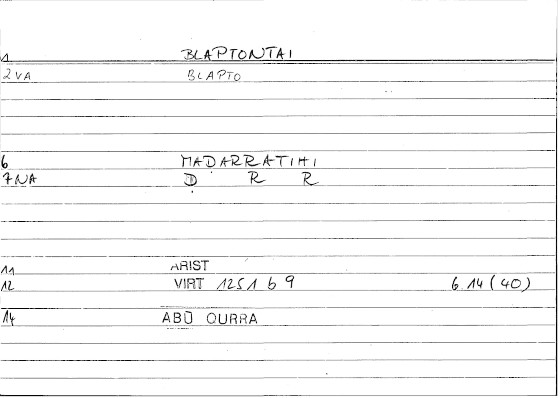 1 BLAPTONTAI
2 VA BLAPTO
6 MADARRATIHI
7 NA Ḍ R R
11 ARIST
12 VIRT 1251 b 9 6.14 (40)
14 ABŪ QURRA